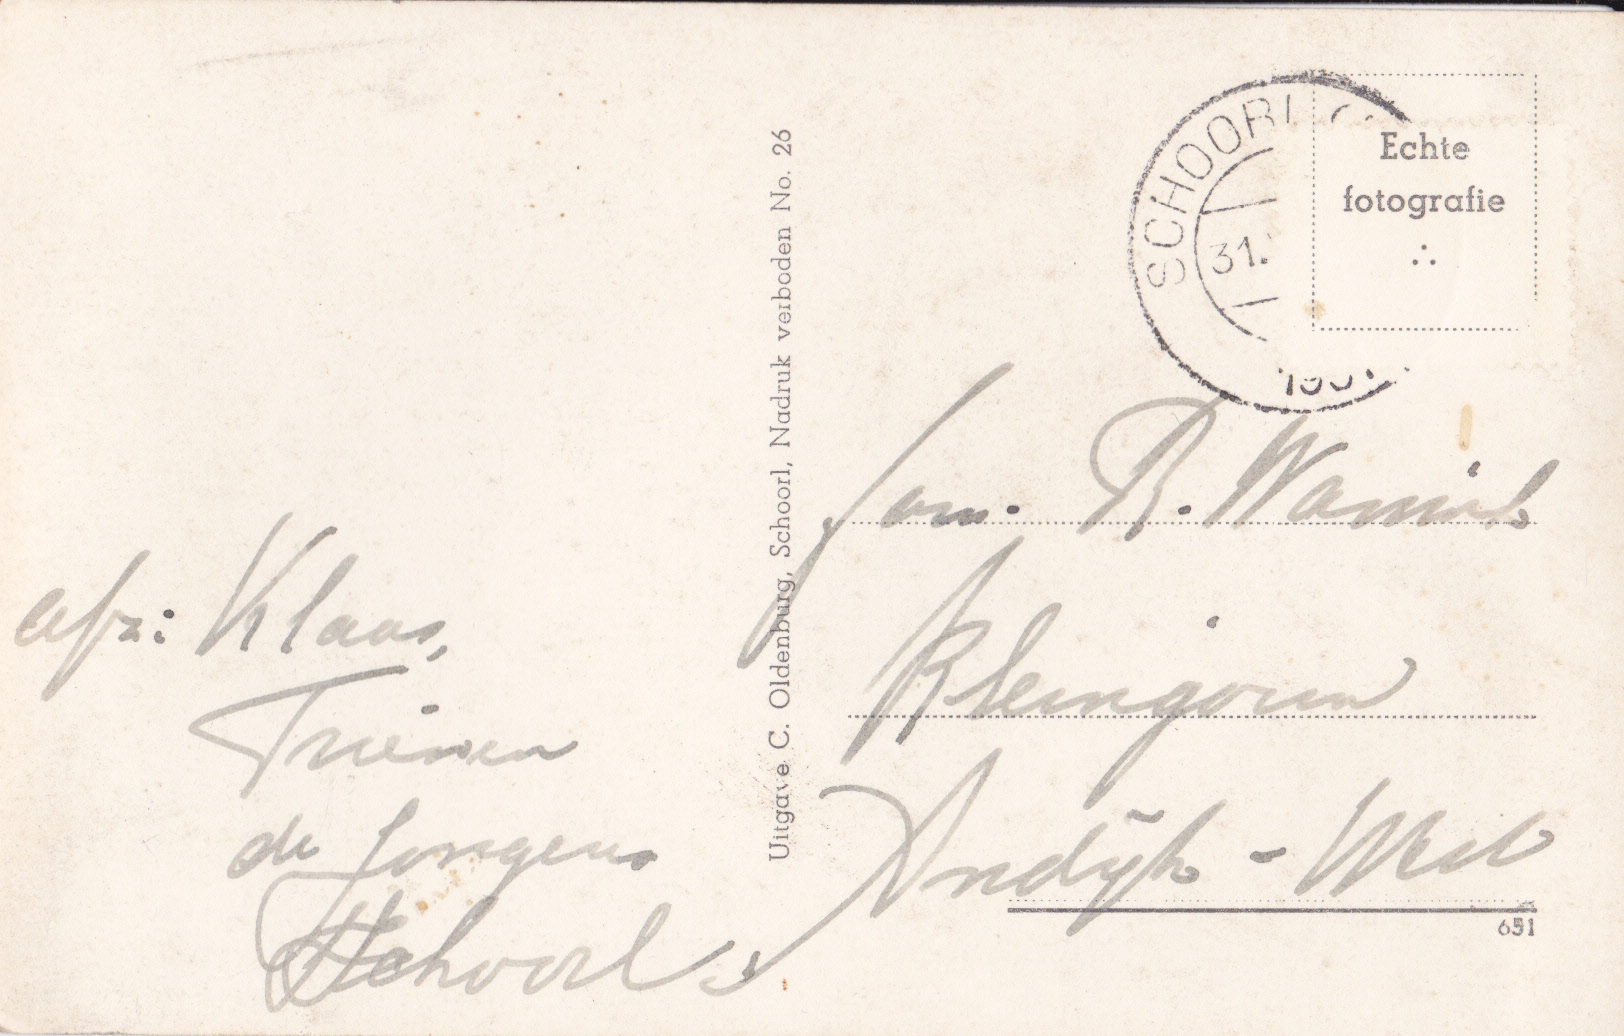 SCHOORL
31.
Echte
fotografie
Uitgave C. Oldenburg, Schoorl, Nadruk verboden No. 26
Fam. R.
Kleingouw
Andijk - West
651
afz: Klaas,
Trienen
de Jongens
Schoorl